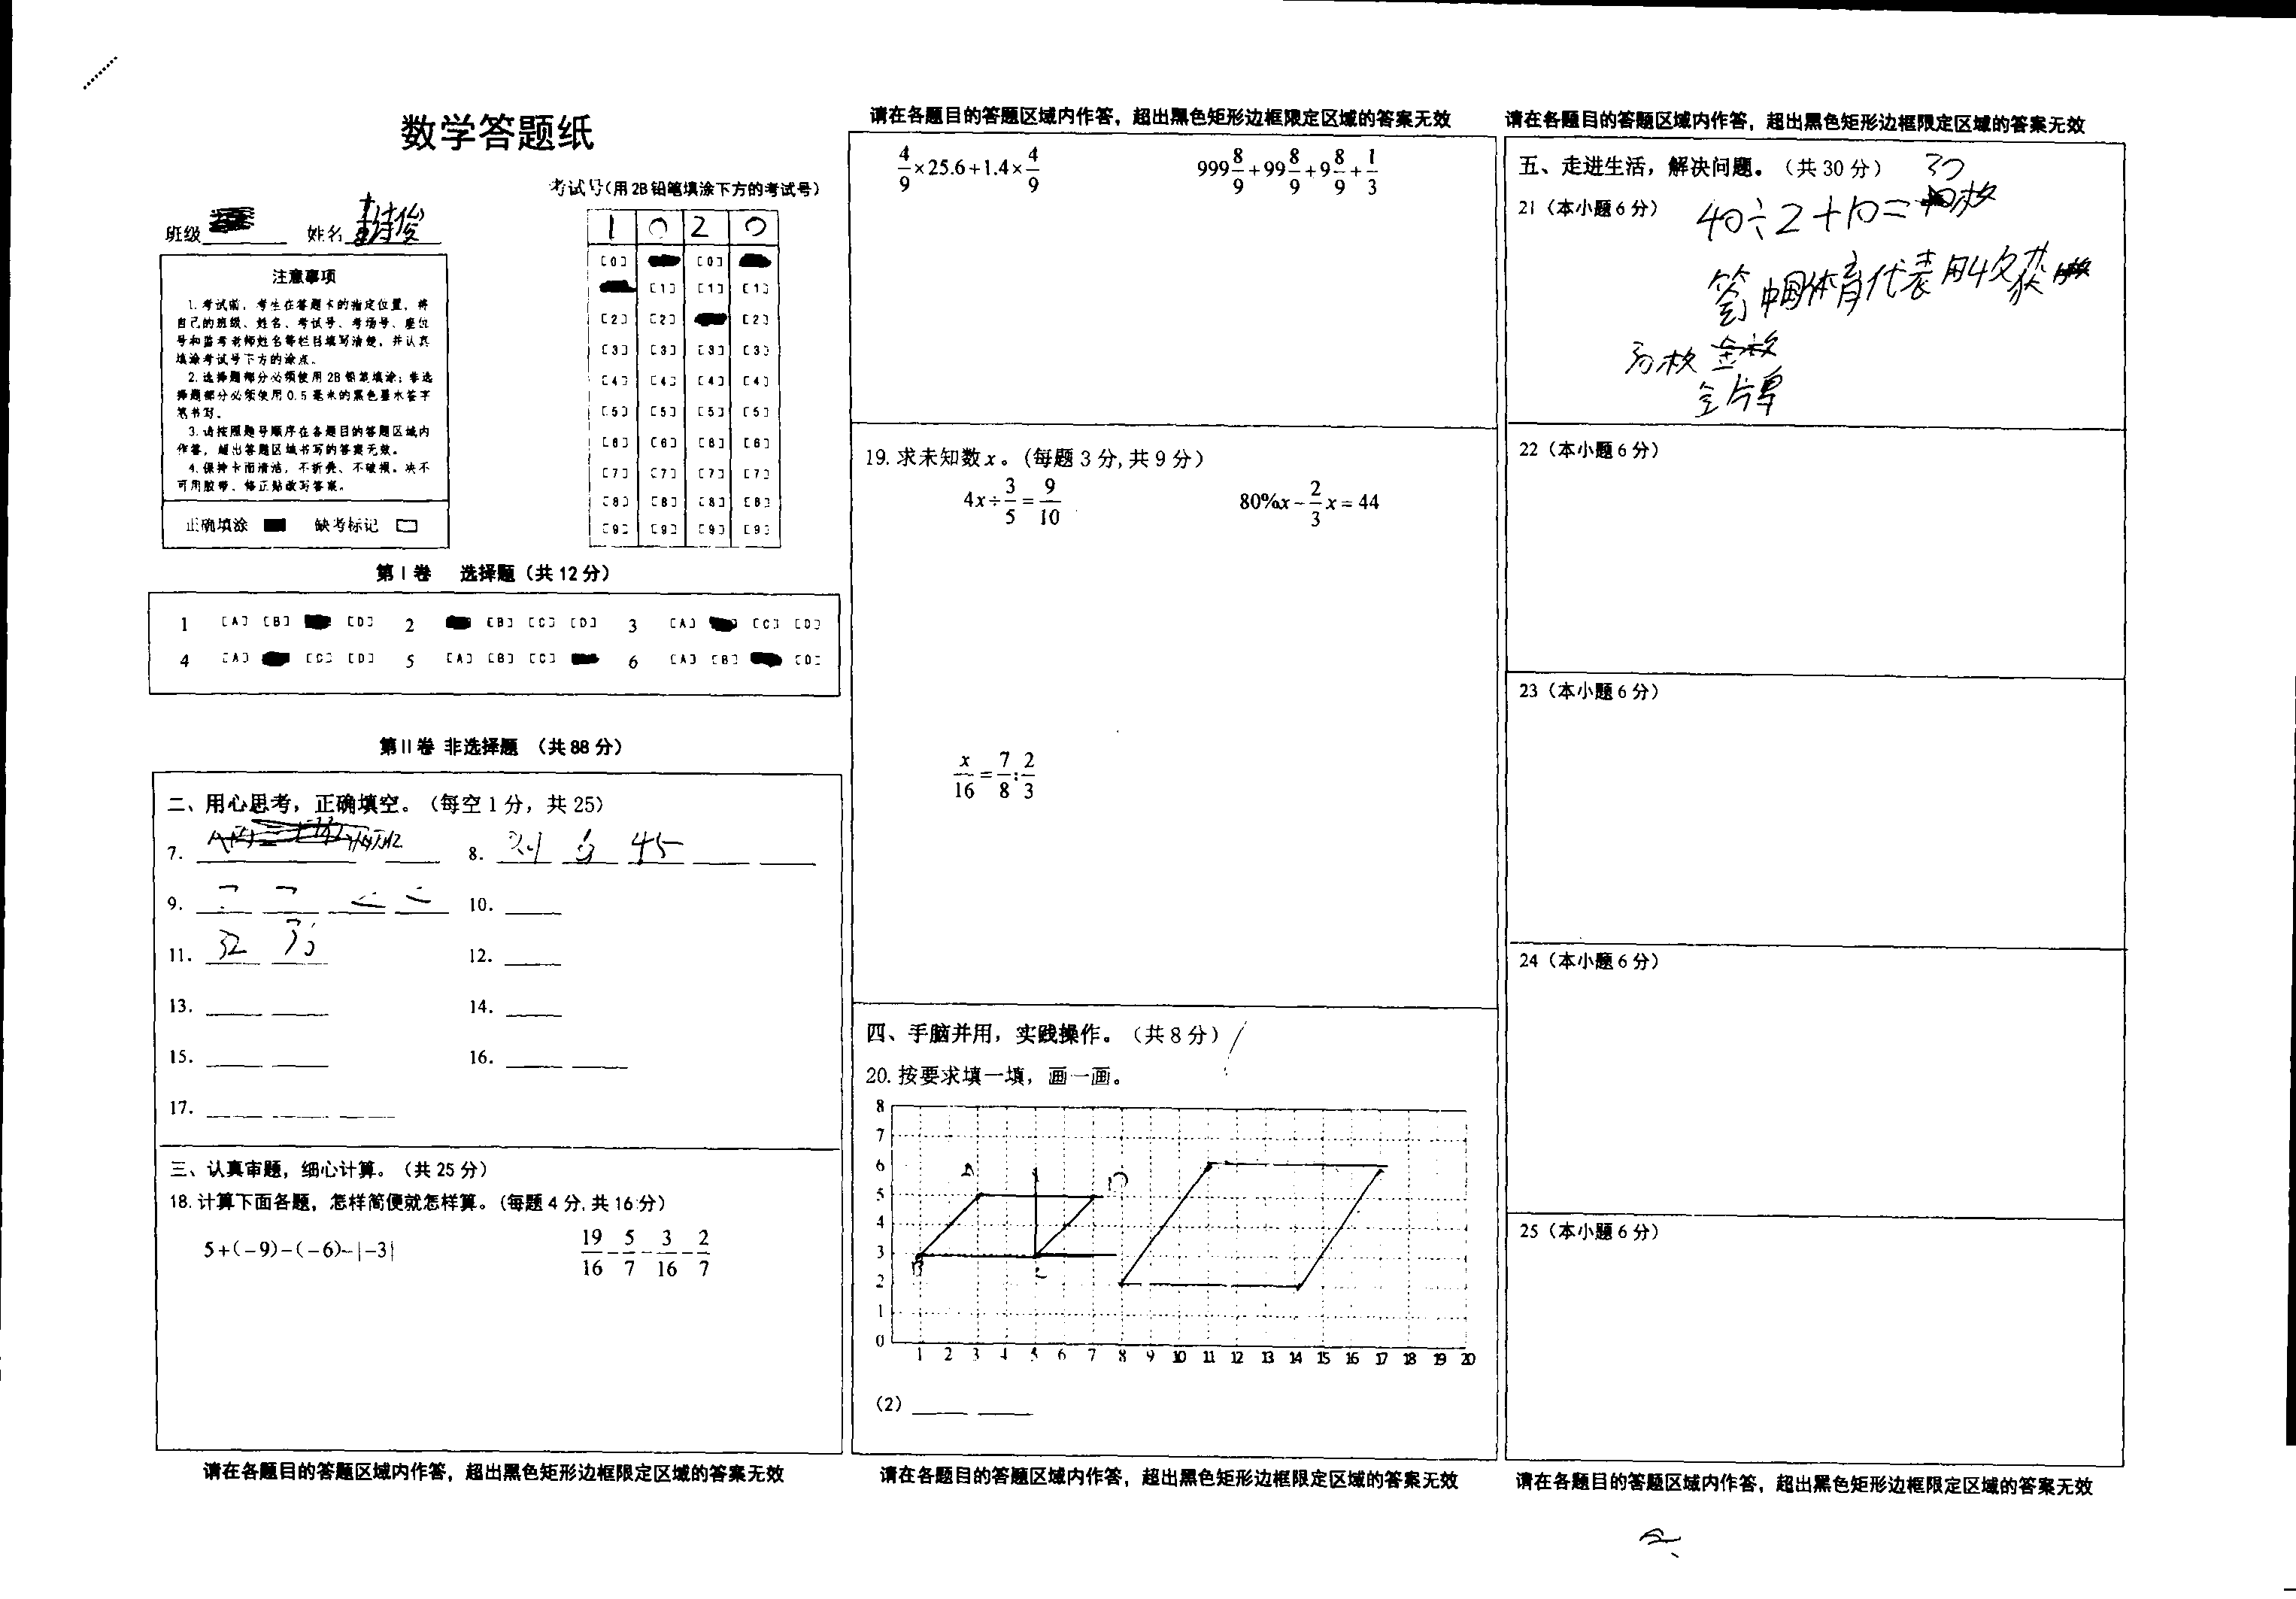 数学答题纸
考试号(用2B铅笔填涂下方的考试号)
班级 姓名
1 0 2 0
[0] [0]
[1] [1] [1]
[2] [2] [2]
[3] [3] [3] [3]
[4] [4] [4] [4]
[5] [5] [5] [5]
[6] [6] [6] [6]
[7] [7] [7] [7]
[8] [8] [8] [8]
[9] [9] [9] [9]
注意事项
1.考试前，考生在答题卡的指定位置，将
自己的班级、姓名、考试号、考场号、座位
号和监考老师姓名等栏目填写清楚，并认真
填涂考试号下方的涂点。
2.选择题部分必须使用2B铅笔填涂；非选
择题部分必须使用0.5毫米的黑色墨水签字
笔书写。
3.请按照题号顺序在各题目的答题区域内
作答，超出答题区域书写的答案无效。
4.保持卡面清洁，不折叠、不破损。决不
可用胶带、修正贴改写答案。
正确填涂 缺考标记
第Ⅰ卷 选择题（共12分）
1 [A] [B] [D] 2 [B] [C] [D] 3 [A] [C] [D]
4 [A] [C] [D] 5 [A] [B] [C] 6 [A] [B] [D]
第Ⅱ卷 非选择题 （共88分）
二、用心思考，正确填空。（每空1分，共25）
7. 8. 45
9. 10.
11. 32 12.
13. 14.
15. 16.
17.
三、认真审题，细心计算。（共25分）
18.计算下面各题，怎样简便就怎样算。(每题4分,共16分)
5+(−9)−(−6)−|−3| 19/16−5/7−3/16−2/7
请在各题目的答题区域内作答，超出黑色矩形边框限定区域的答案无效
请在各题目的答题区域内作答，超出黑色矩形边框限定区域的答案无效
4/9×25.6+1.4×4/9 999 8/9+99 8/9+9 8/9+1/3
19.求未知数x。(每题3分,共9分)
4x÷3/5=9/10 80%x−2/3x=44
x/16=7/8:2/3
四、手脑并用，实践操作。（共8分）
20.按要求填一填，画一画。
8
7
6
5
4
3
2
1
0
A D
B C
1 2 3 4 5 6 7 8 9 10 11 12 13 14 15 16 17 18 19 20
（2）
请在各题目的答题区域内作答，超出黑色矩形边框限定区域的答案无效
请在各题目的答题区域内作答，超出黑色矩形边框限定区域的答案无效
五、走进生活，解决问题。（共30分）
21（本小题6分） 40÷2+10=30枚
答 中国体育代表用4次获
30枚
金牌
22（本小题6分）
23（本小题6分）
24（本小题6分）
25（本小题6分）
请在各题目的答题区域内作答，超出黑色矩形边框限定区域的答案无效